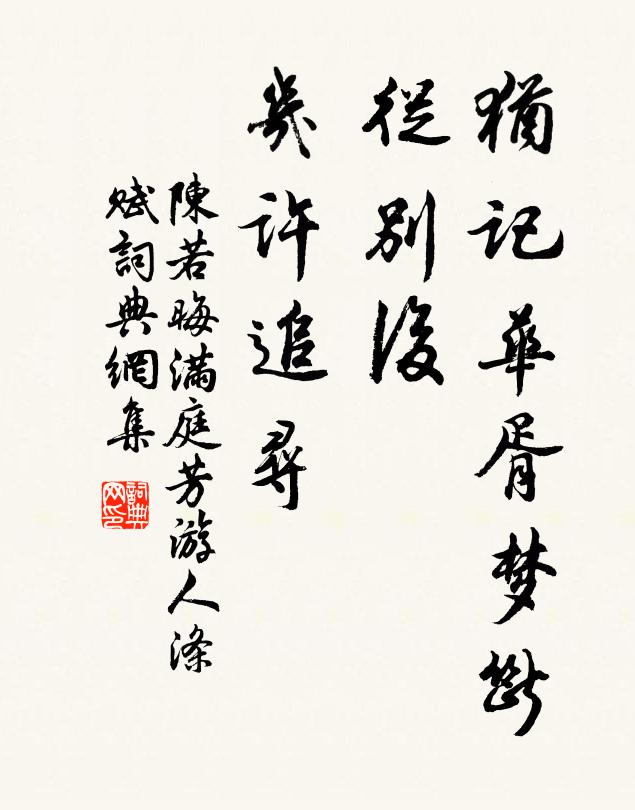 猶記華胥梦斷
從別後
幾許追尋
陳若晦滿庭芳游人滌
賦詞典網集
詞典
网印